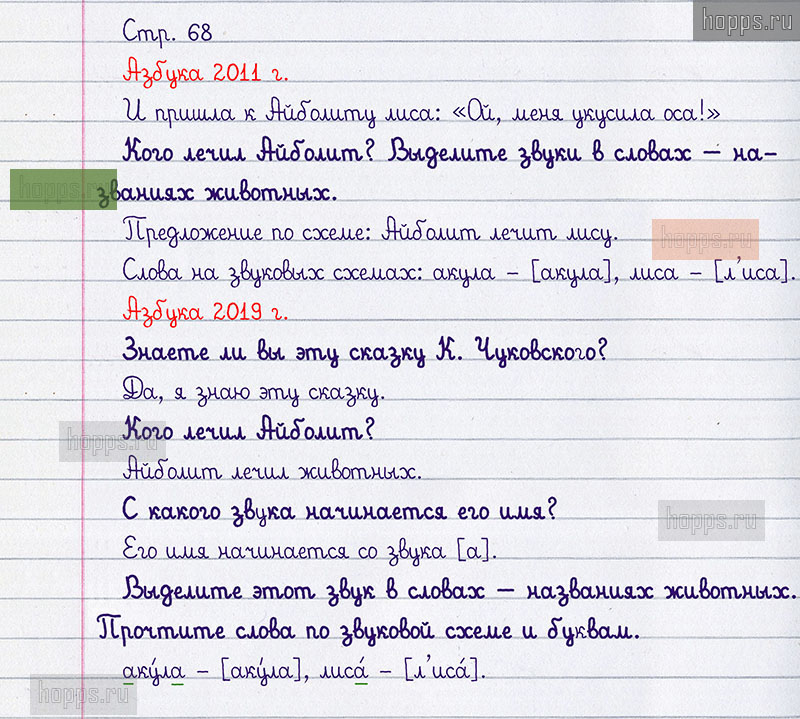 hopps.ru
Стр. 68
Азбука 2011 г.
И пришла к Айболиту лиса: «Ой, меня укусила оса!»
Кого лечил Айболит? Выделите звуки в словах — на-
hopps.ru
званиях животных.
Предложение по схеме: Айболит лечит лису.
hopps.ru
Слова на звуковых схемах: акула – [акула], лиса – [л'иса].
Азбука 2019 г.
Знаете ли вы эту сказку К. Чуковского?
Да, я знаю эту сказку.
Кого лечил Айболит?
hopps.ru
Айболит лечил животных.
С какого звука начинается его имя?
hopps.ru
Его имя начинается со звука [а].
Выделите этот звук в словах — названиях животных.
Прочтите слова по звуковой схеме и буквам.
аку́ла – [аку́ла], лиса́ – [л'иса́].
hopps.ru